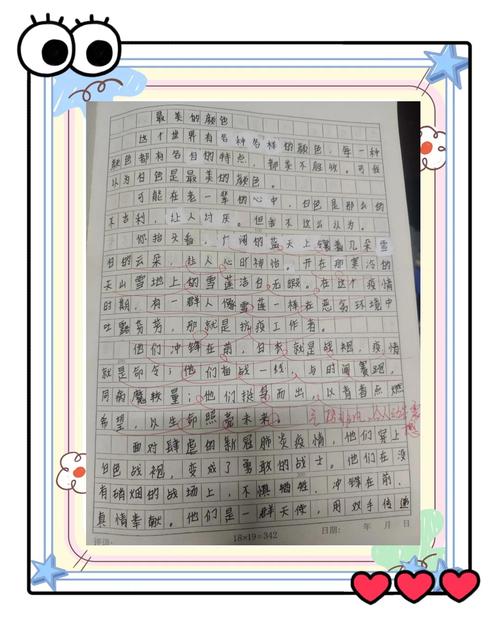 最美的颜色
这个世界有各种各样的颜色，每一种
颜色都有各自的特点，都美不胜收。可我
认为白色是最美的颜色。
可能在老一辈的心中，白色是那么的
不吉利，让人讨厌。但我不这么认为。
你抬头看，广阔的蓝天上镶着几朵雪
白的云朵，让人心旷神怡。开在那寒冷的
天山雪地上的雪莲洁白无暇。在这个疫情
时期，有一群人像雪莲一样在恶劣环境中
吐露芬芳，那就是抗疫工作者。
他们冲锋在前，白衣就是战袍，疫情
就是命令；他们奋战一线，与时间赛跑，
同病魔较量；他们挺身而出，以青春点燃
希望，以生命照亮未来。
面对肆虐的新冠肺炎疫情，他们穿上
白色战袍，变成了勇敢的战士。他们在没
有硝烟的战场上，不惧牺牲，冲锋在前，
真情奉献。他们是一群天使，用双手传递
评语：
18×19=342
日期： 年 月 日